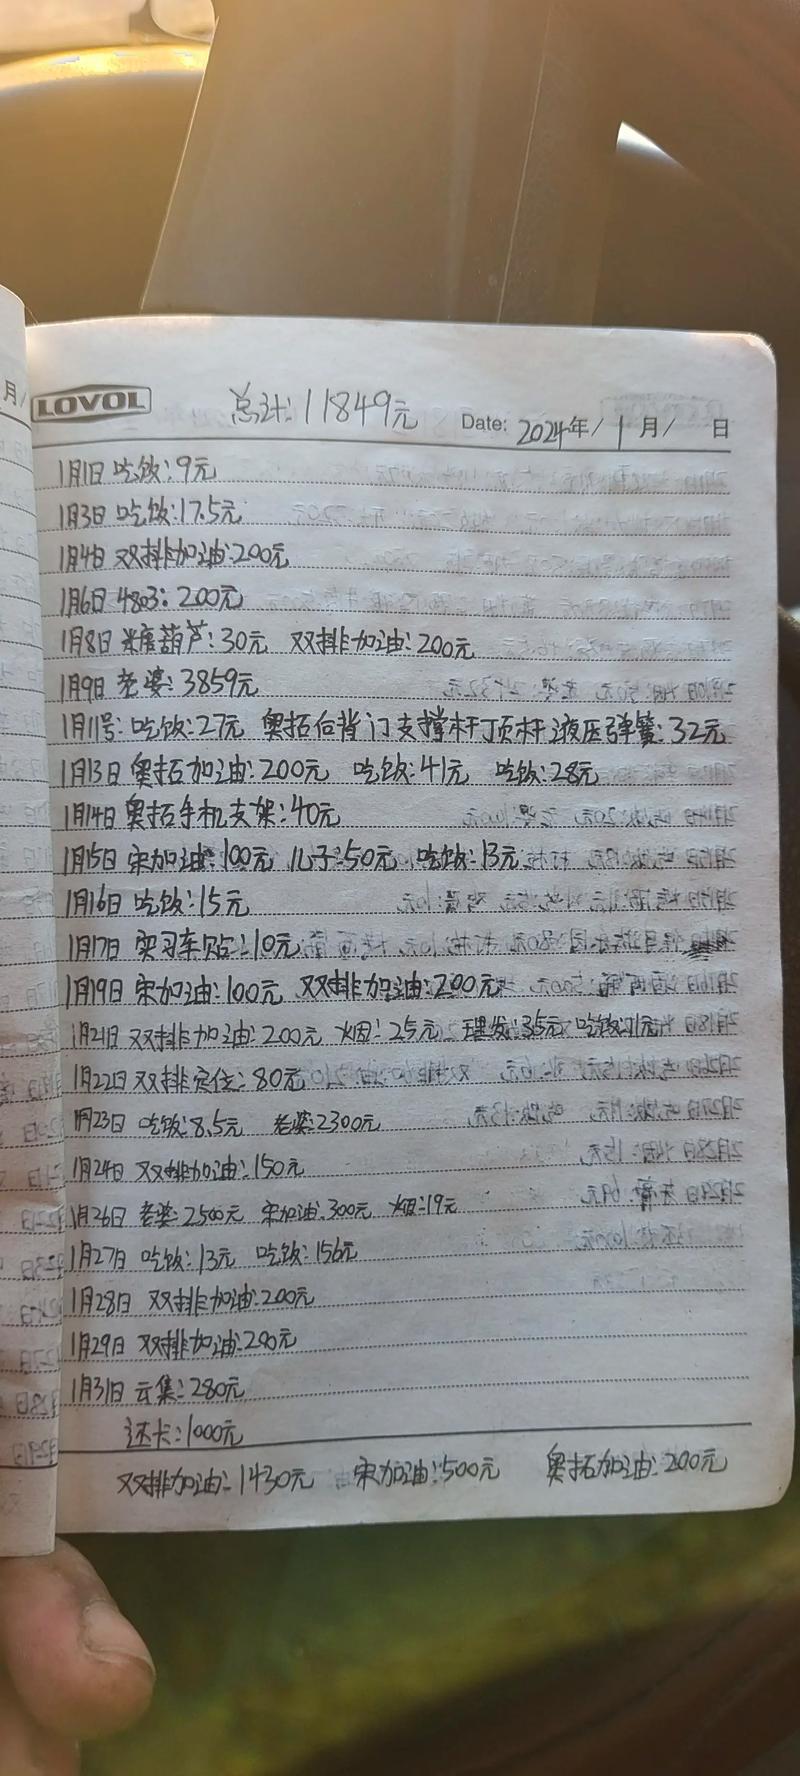 LOVOL 总计:11849元 Date: 2024年/1月/ 日
1月1日 吃饭:9元
1月3日 吃饭:17.5元
1月4日 双排加油:200元
1月6日 4803:200元
1月8日 糖葫芦:30元 双排加油:200元
1月9日 老婆:3859元
1月11号:吃饭:27元 奥拓后背门支撑杆顶杆液压弹簧:32元
1月13日 奥拓加油:200元 吃饭:41元 吃饭:28元
1月14日 奥拓手机支架:40元
1月15日 宋加油:100元 儿子:50元 吃饭:13元
1月16日 吃饭:15元
1月17日 实习车贴:10元
1月19日 宋加油:100元 双排加油:200元
1月21日 双排加油:200元 烟:25元 理发:35元 吃饭:11元
1月22日 双排定位:80元
1月23日 吃饭:8.5元 老婆:2300元
1月24日 双排加油:150元
1月26日 老婆:2500元 宋加油:300元 烟:19元
1月27日 吃饭:13元 吃饭:156元
1月28日 双排加油:200元
1月29日 双排加油:200元
1月31日 云集:280元
还卡:1000元
双排加油:1430元 宋加油:500元 奥拓加油:200元